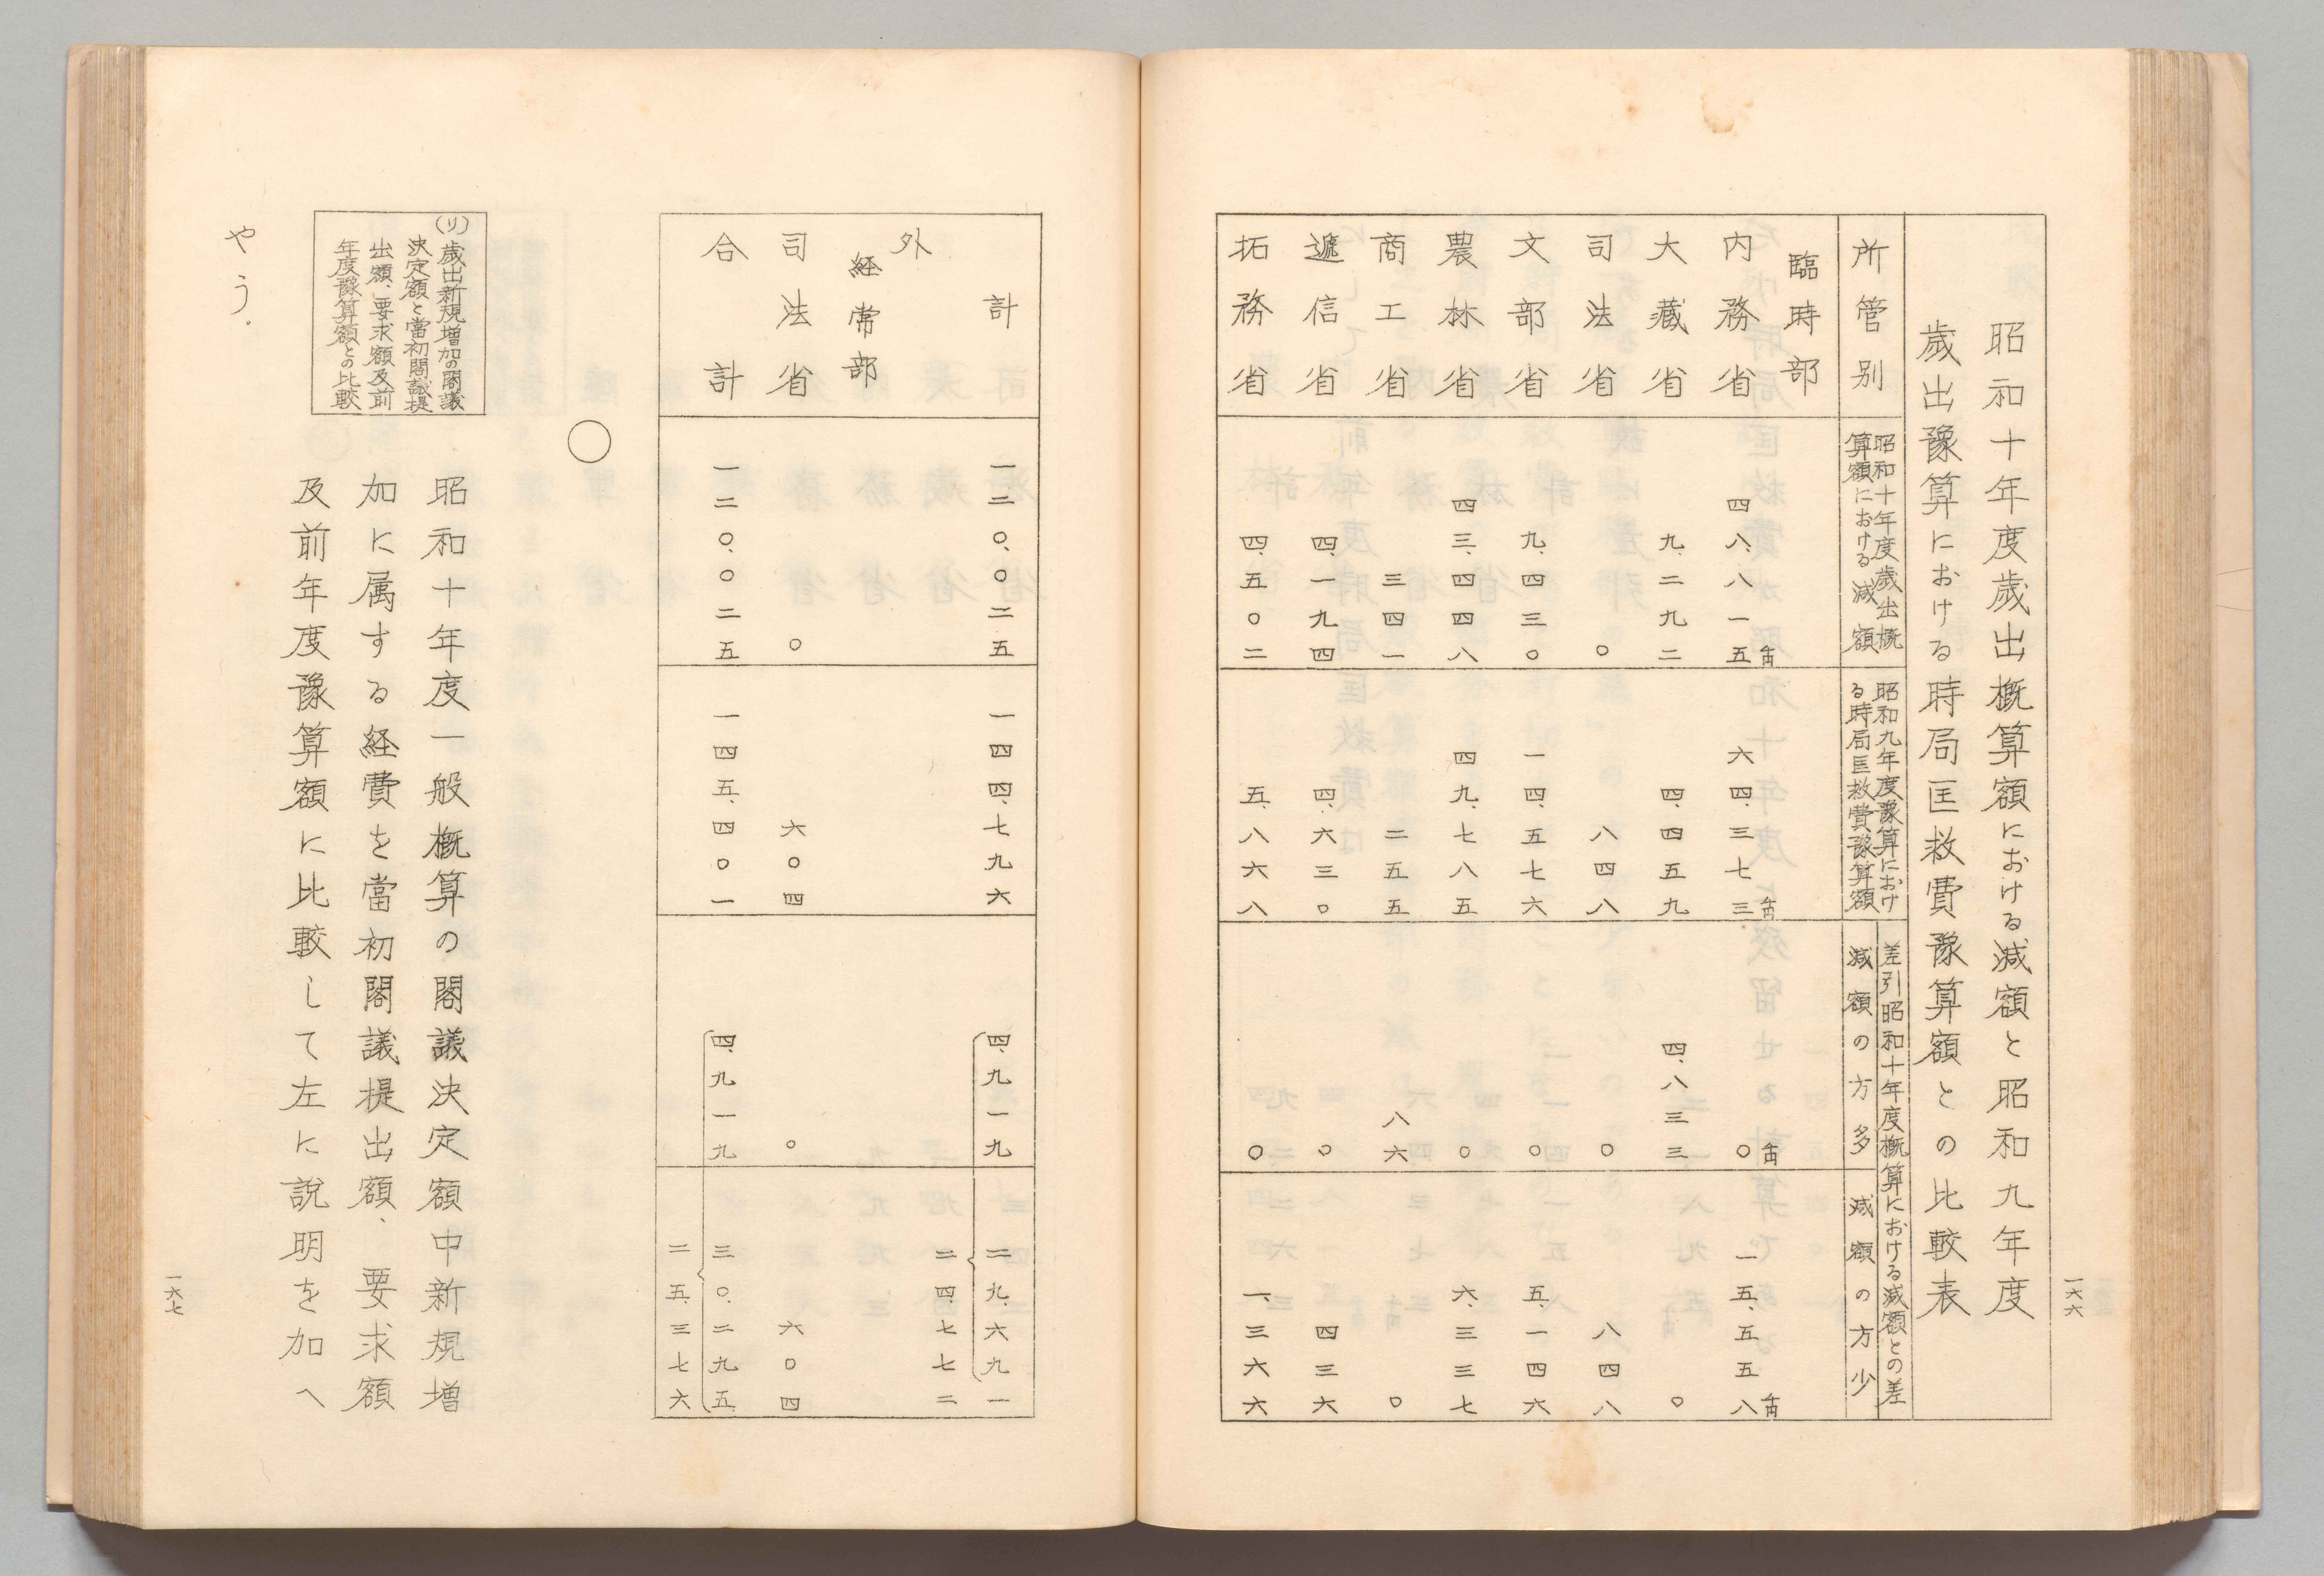 昭和十年度歳出概算額における減額と昭和九年度
歳出豫算における時局匡救費豫算額との比較表
所管別
昭和十年度歳出概
算額における減額
昭和九年度豫算におけ
る時局匡救費豫算額
差引昭和十年度概算における減額との差
減額の方多
減額の方少
臨時部
内務省 四八、八一五千円 六四、三七三千円 〇千円 一五、五五八千円
大藏省 九、二九二 四、四五九 四、八三三 〇
司法省 〇 八四八 〇 八四八
文部省 九、四三〇 一四、五七六 〇 五、一四六
農林省 四三、四四八 四九、七八五 〇 六、三三七
商工省 三四一 二五五 八六 〇
遞信省 四、一九四 四、六三〇 〇 四三六
拓務省 四、五〇二 五、八六八 〇 一、三六六
一六六
計 一二〇、〇二五 一四四、七九六 四、九一九 二九、六九一
二四、七七二
外
経常部
司法省 〇 六〇四 〇 六〇四
合計 一二〇、〇二五 一四五、四〇一 四、九一九 三〇、二九五
二五、三七六
〇
(リ)歳出新規増加の閣議
決定額と當初閣議提
出額、要求額及前
年度豫算額との比較
昭和十年度一般概算の閣議決定額中新規増
加に属する経費を當初閣議提出額、要求額
及前年度豫算額に比較して左に説明を加へ
やう.
一六七